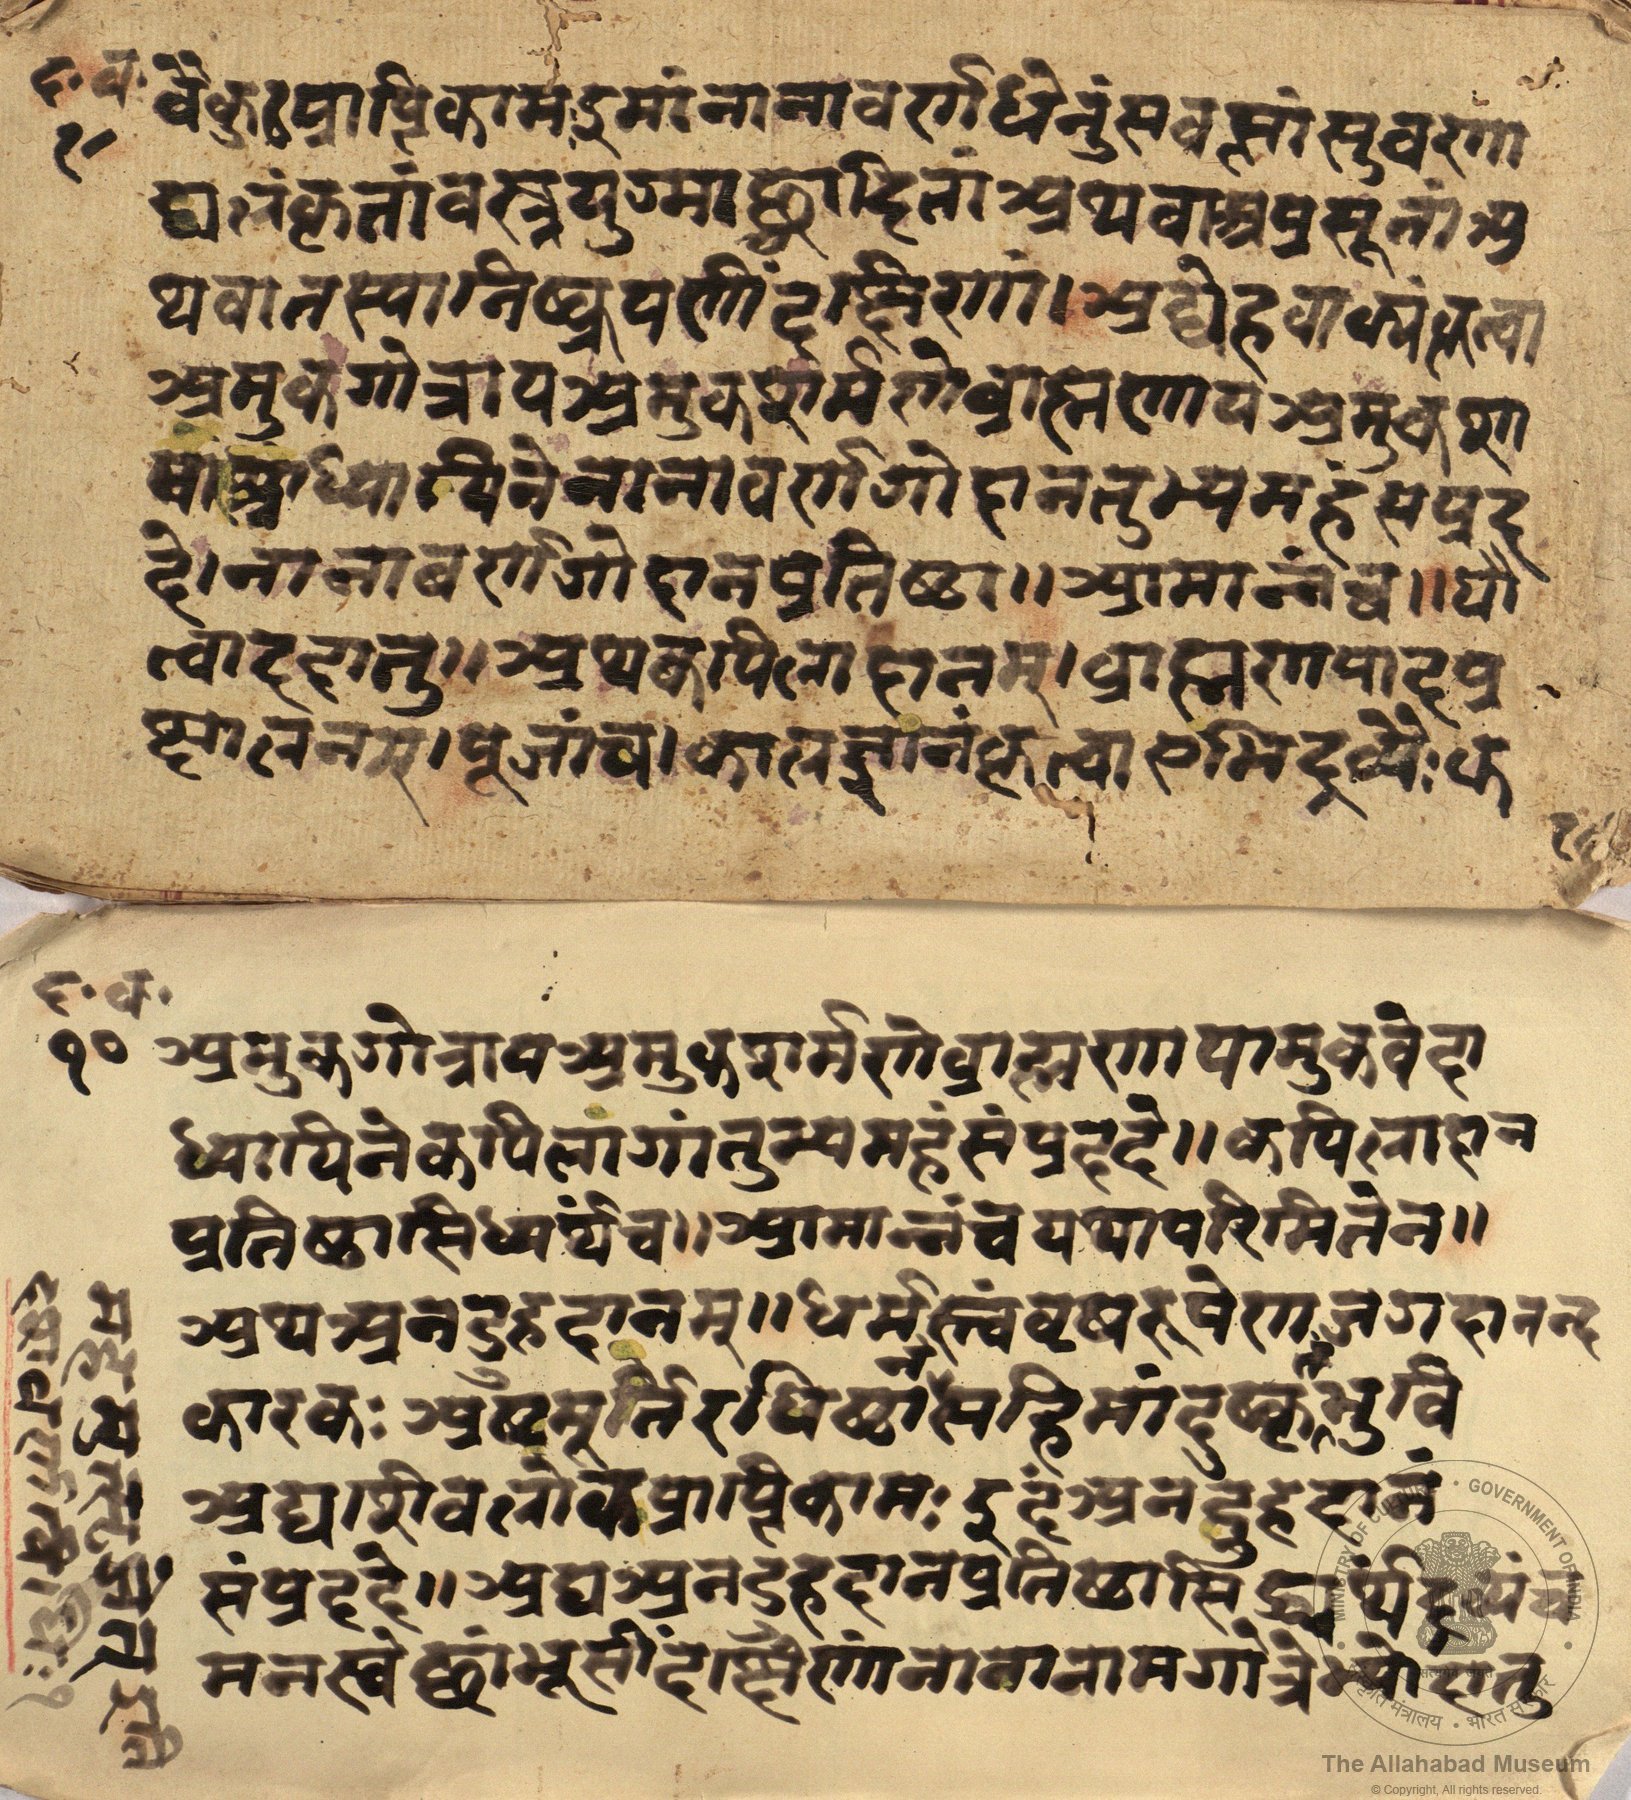 द॰ व॰
१८
वैकुंठप्राप्तिकामःइमांनानावर्णधेनुंसवत्सांसुवर्णा
द्यलंकृतांवस्त्रयुग्माछादितांअथवाअप्रसूतांअ
थवातस्यानिष्क्रयणींदक्षिणां।अद्येहवाक्यंकृत्वा
अमुकगोत्रायअमुकशर्मणेब्राह्मणायअमुकशा
षाध्यायिनेनानावर्णगोदानतुभ्यमहंसंप्रद
दे।नानावर्णगोदानप्रतिष्ठा॥आमान्नंच॥द्यौ
त्वाददातु॥अथकपिलादानम्।ब्राह्मणपादप्र
क्षालनम्।पूजांच।कालज्ञानंकृत्वाएभिद्रव्यैःक
द॰ व॰
१०
अमुकगोत्रायअमुकशर्मणेब्राह्मणायामुकवेदा
ध्यायिनेकपिलांगांतुभ्यमहंसंप्रददे॥कपिलादान
प्रतिष्ठासिध्यर्थंच॥आमान्नंचयथापरिमितेन॥
अथअनडुहदानम्॥धर्मस्त्वंवृषरूपेणजगदानन्द
कारकः अष्टमूर्तिरधिष्ठानंसहिमांदुष्कृतंभुवि
अद्यशिवलोकप्राप्तिकामःइदंअनडुहदानं
संप्रददे॥अद्यअनडुहदानप्रतिष्ठासिद्ध्यर्थंद्रव्यं
मनस्वेछांभूसींदक्षिणांनानानामगोत्रेभ्योदातु
The Allahabad Museum
© Copyright, All rights reserved.
MINISTRY OF CULTURE • GOVERNMENT OF INDIA
संस्कृति मंत्रालय • भारत सरकार